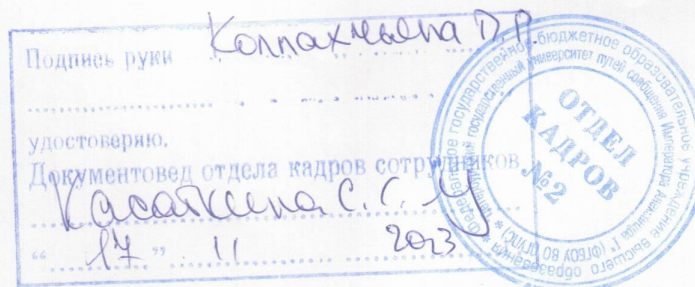 Подпись руки Колпахчьяна П.Г.
удостоверяю.
Документовед отдела кадров сотрудников
Касаткина С.С.
“ 17 ” 11 2023
Федеральное государственное бюджетное образовательное учреждение высшего образования
государственный университет путей сообщения Императора Александра I" (ФГБОУ ВО ПГУПС)
ОТДЕЛ
КАДРОВ
№2